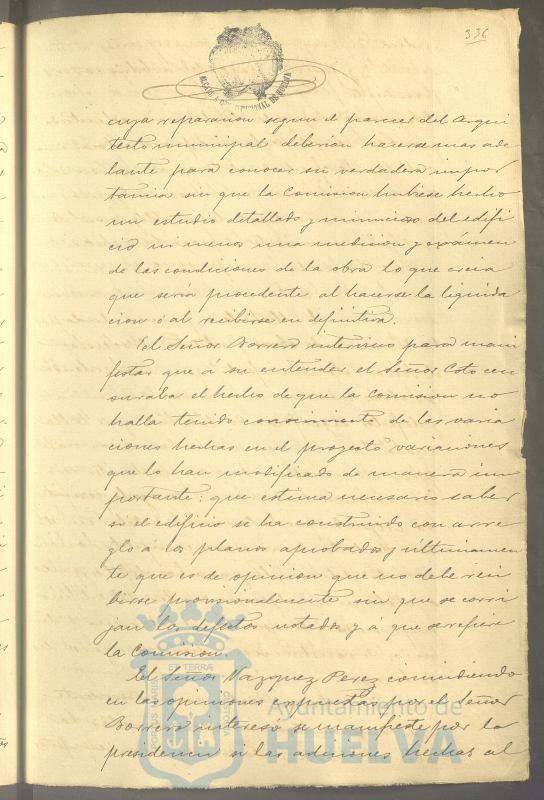 336
ALCALDIA CONSTITUCIONAL DE HUELVA
cuya reparacion segun el parecer del Arqui
tecto municipal deberian hacerse mas ade
lante para conocer su verdadera impor
tancia sin que la Comision hubiese hecho
un estudio detallado y minucioso del edifi
cio ni menos una medicion y exámen
de las condiciones de la obra lo que creia
que seria procedente al hacerse la liquida
cion ó al recibirse en definitiva.
El Señor Borrero intervino para mani
festar que á su entender el Señor Coto cen
suraba el hecho de que la Comision no
halla tenido conocimiento de las varia
ciones hechas en el proyecto variaciones
que lo han modificado de manera im
portante: que estima necesario saber
si el edificio se ha construido con arre
glo á los planos aprobados y ultimamen
te que es de opinion que no debe reci
birse provisionalmente sin que se corri
jan los defectos notados y á que se refiere
la Comision.
El Señor Vazquez Perez coincidiendo
en las opiniones expuestas por el Señor
Borrero interesó se manifieste por la
presidencia si las adiciones hechas al
ET TERRÆ
Ayuntamiento de
HUELVA